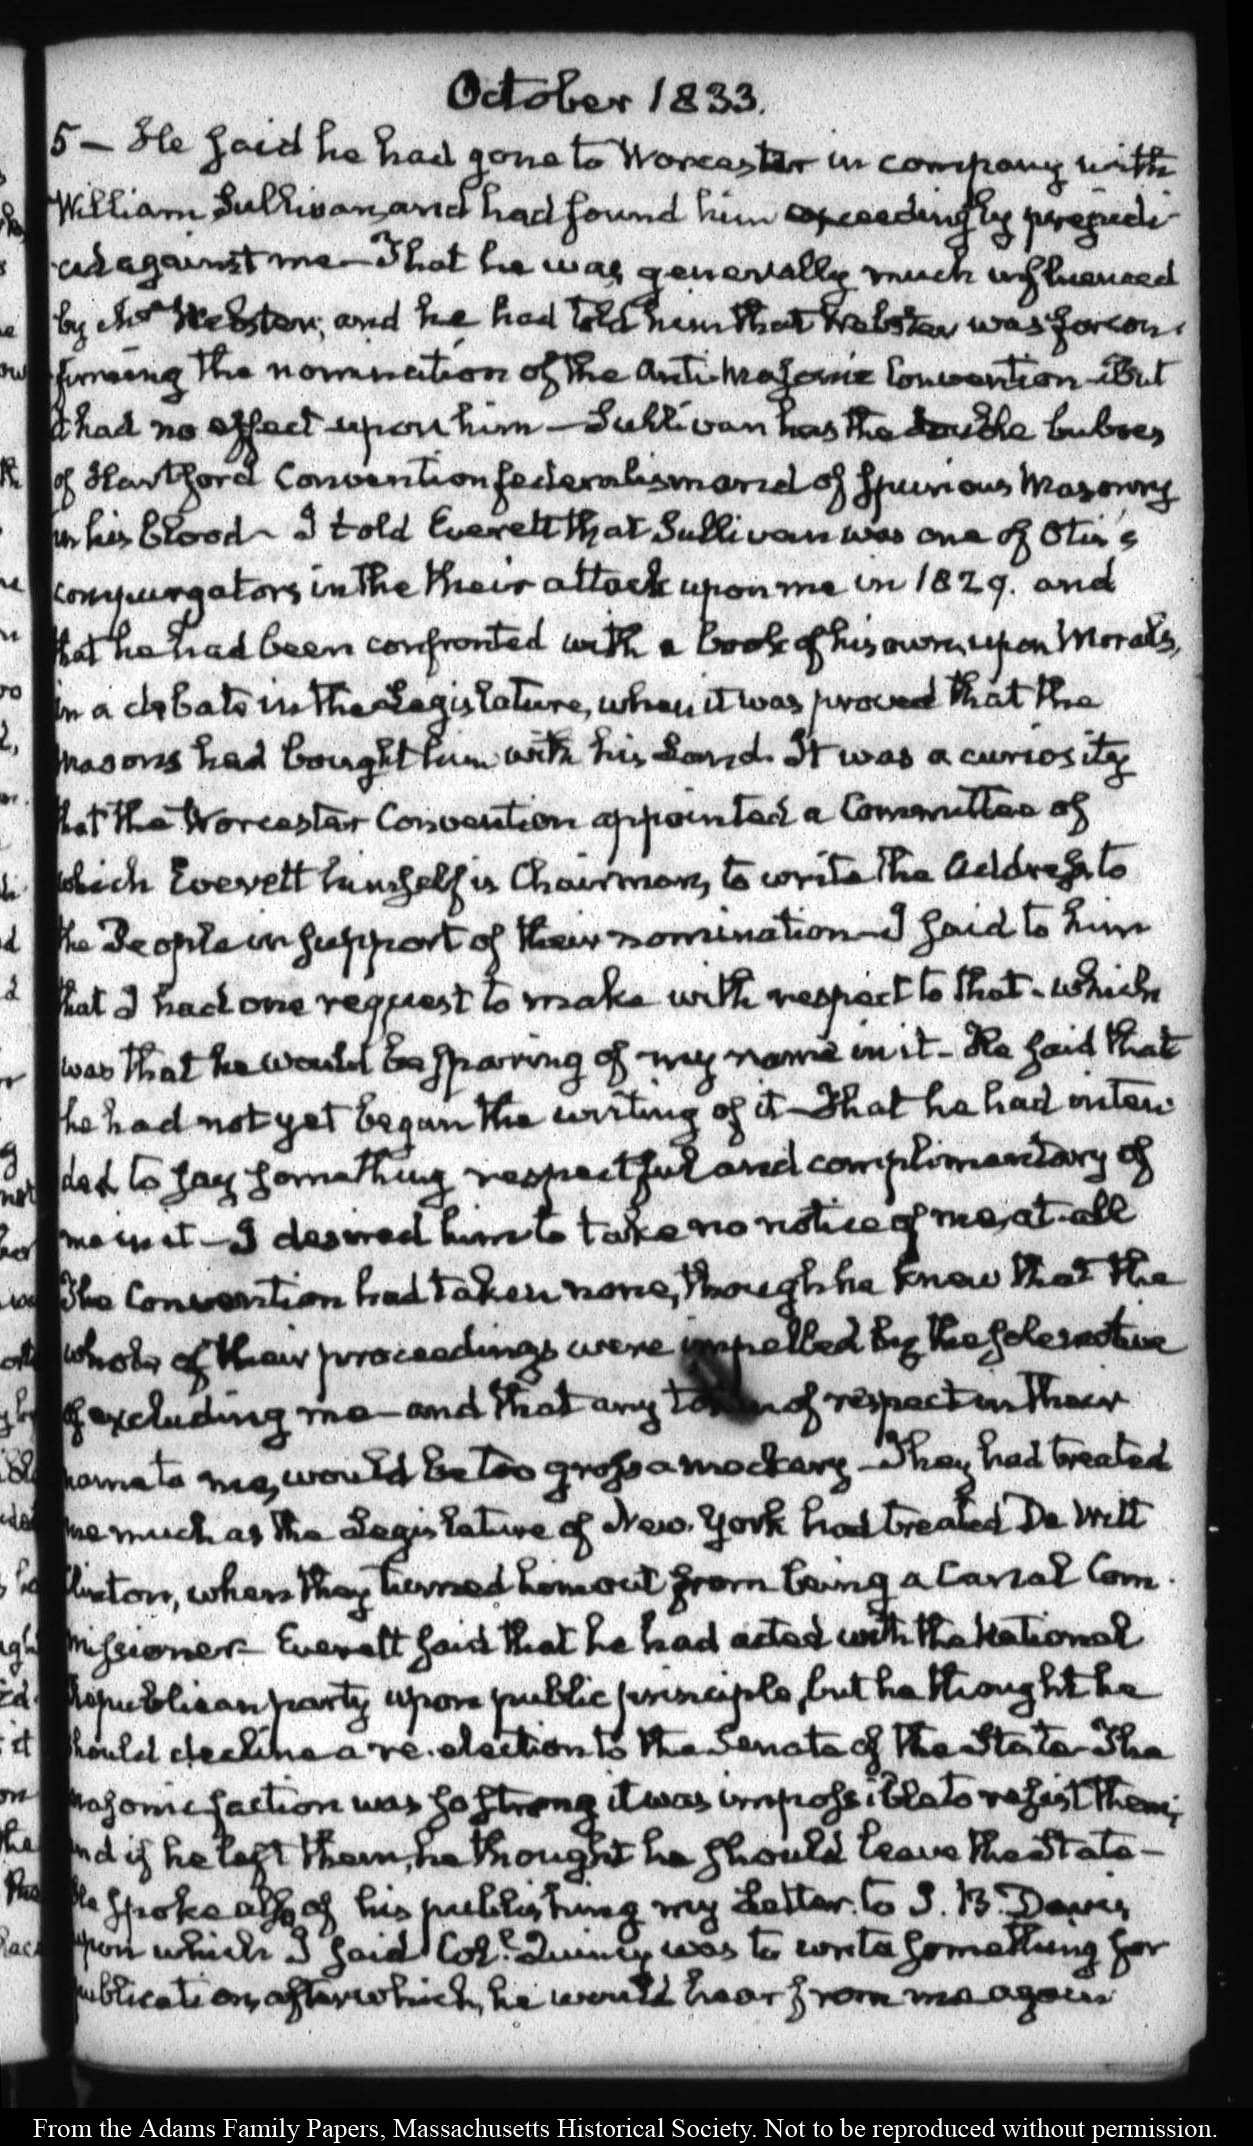 October 1833.
5 — He said he had gone to Worcester in company with
William Sullivan, and had found him exceedingly prejudi-
ced against me — That he was generally much influenced
by Mr Webster; and he had told him that Webster was for con-
firming the nomination of the Anti-Masonic Convention — But
it had no effect upon him — Sullivan has the double buboes
of Hartford Convention federalism and of spurious Masonry
in his blood — I told Everett that Sullivan was one of Otis's
compurgators in the their attack upon me in 1829. and
that he had been confronted with a book of his own, upon Morals,
in a debate in the Legislature, when it was proved that the
Masons had bought him with his Land. It was a curiosity
that the Worcester Convention appointed a Committee of
which Everett himself is Chairman, to write the Address to
the People in support of their nomination — I said to him
that I had one request to make with respect to that — which
was that he would be sparing of my name in it — He said that
he had not yet begun the writing of it — That he had inten-
ded to say something respectful and complimentary of
me in it — I desired him to take no notice of me, at all
The Convention had taken none, though he knew that the
whole of their proceedings were impelled by the sole motive
of excluding me — and that any token of respect in their
name to me, would be too gross a mockery — They had treated
me much as the Legislature of New-York had treated De Witt
Clinton, when they turned him out from being a Canal Com-
missioner — Everett said that he had acted with the National
Republican party upon public principle, but he thought he
should decline a re-election to the Senate of the State — The
masonic faction was so strong it was impossible to resist them;
and if he left them, he thought he should leave the State —
He spoke also of his publishing my Letter to J. B. Davis
upon which I said Col. Quincy was to write something for
publication, after which, he would hear from me again
From the Adams Family Papers, Massachusetts Historical Society. Not to be reproduced without permission.